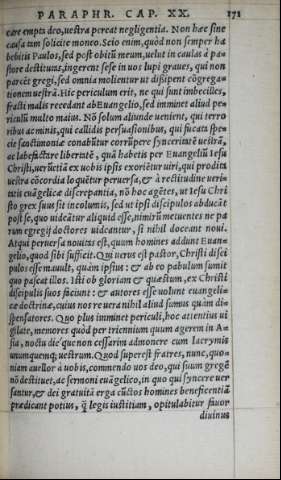 PARAPHR. CAP. XX. 171
care empta deo, uestra pereat negligentia. Non hæc sine
causa tam solicite moneo. Scio enim, quòd non semper ha
bebitis Paulos, sed post obitũ meum, uelut in caulas à pa-
store destitutas, ingerent sese in uos lupi graues, qui non
parcẽt gregi, sed omnia molientur ut dissipent cõgrega-
tionem uestrã. Hîc periculum erit, ne qui sunt imbecilles,
fracti malis recedant ab Euangelio, sed imminet aliud pe-
riculũ multo maius. Nõ solum aliunde uenient, qui terro
ribus ac minis, qui callidis persuasionibus, qui fucata spe-
cie sanctimoniæ conabũtur corrũpere synceritatẽ uestrã,
ac labefactare libertatẽ, quã habetis per Euangeliũ Iesu
Christi, uerũetiã ex uobis ipsis exorietur uiri, qui prodita
uestra cõcordia loquẽtur peruersa, & à rectitudine ueri-
tatis euãgelicæ discrepantia, nõ hoc agẽtes, ut Iesu Chri
sto grex suus sit incolumis, sed ut ipsi discipulos abducãt
post se, quo uideãtur aliquid esse, nimirũ metuentes ne pa
rum egregij doctores uideantur, si nihil doceant noui.
Atqui peruersa nouitas est, quum homines addunt Euan-
gelio, quod sibi sufficit. Qui uerus est pastor, Christi disci
pulos esse mauult, quàm ipsius: & ab eo pabulum sumit
quo pascat illos. Isti ob gloriam & quæstum, ex Christi
discipulis suos faciunt: & autores esse uolunt euangeli-
cæ doctrinæ, cuius nos re uera nihil aliud sumus quàm di-
spensatores. Quo plus imminet periculi, hoc attentius ui
gilate, memores quòd per triennium quum agerem in A-
sia, noctu die´que non cessarim admonere cum lacrymis
unumquemq; uestrum. Quod superest fratres, nunc, quo-
niam auellor à uobis, commendo uos deo, qui suum gregẽ
nõ destituet, ac sermoni euãgelico, in quo qui syncere uer
santur, & dei gratuitã erga cũctos homines beneficentiã
prædicant potius, q̃ legis iustitiam, opitulabitur fauor
diuinus